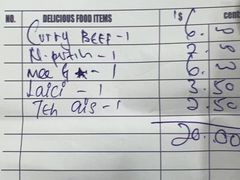 NO. DELICIOUS FOOD ITEMS $ cent
Curry BEEF - 1 6.
N. putih - 1 2.
mee G - 1 6.
Laici - 1 3.50
Teh ais - 1 2.50
20.00